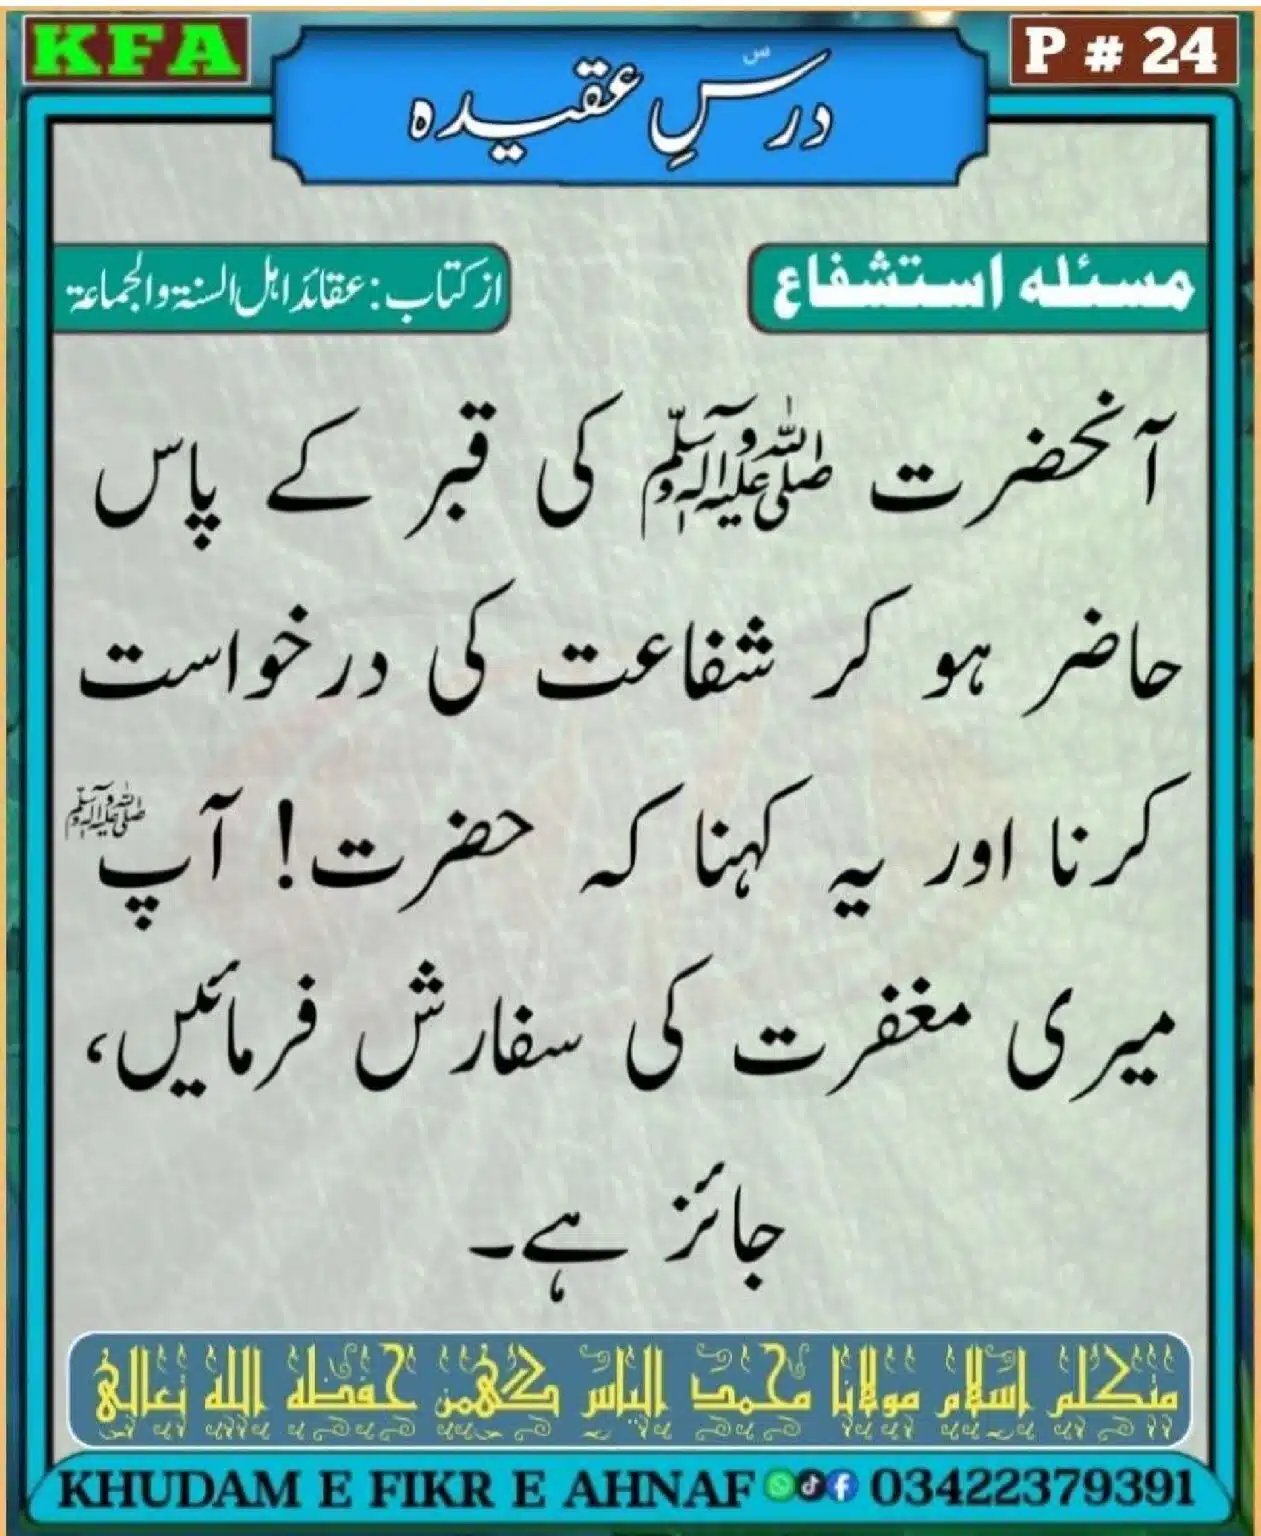 KFA
درسِ عقیدہ
P # 24
مسئلہ استشفاع
از کتاب: عقائد اہل السنۃ والجماعۃ
آنحضرت صلی اللہ علیہ وآلہ وسلم کی قبر کے پاس
حاضر ہو کر شفاعت کی درخواست
کرنا اور یہ کہنا کہ حضرت! آپ صلی اللہ علیہ وآلہ وسلم
میری مغفرت کی سفارش فرمائیں،
جائز ہے۔
متکلم اسلام مولانا محمد الیاس گھمن حفظہ اللہ تعالیٰ
KHUDAM E FIKR E AHNAF 03422379391